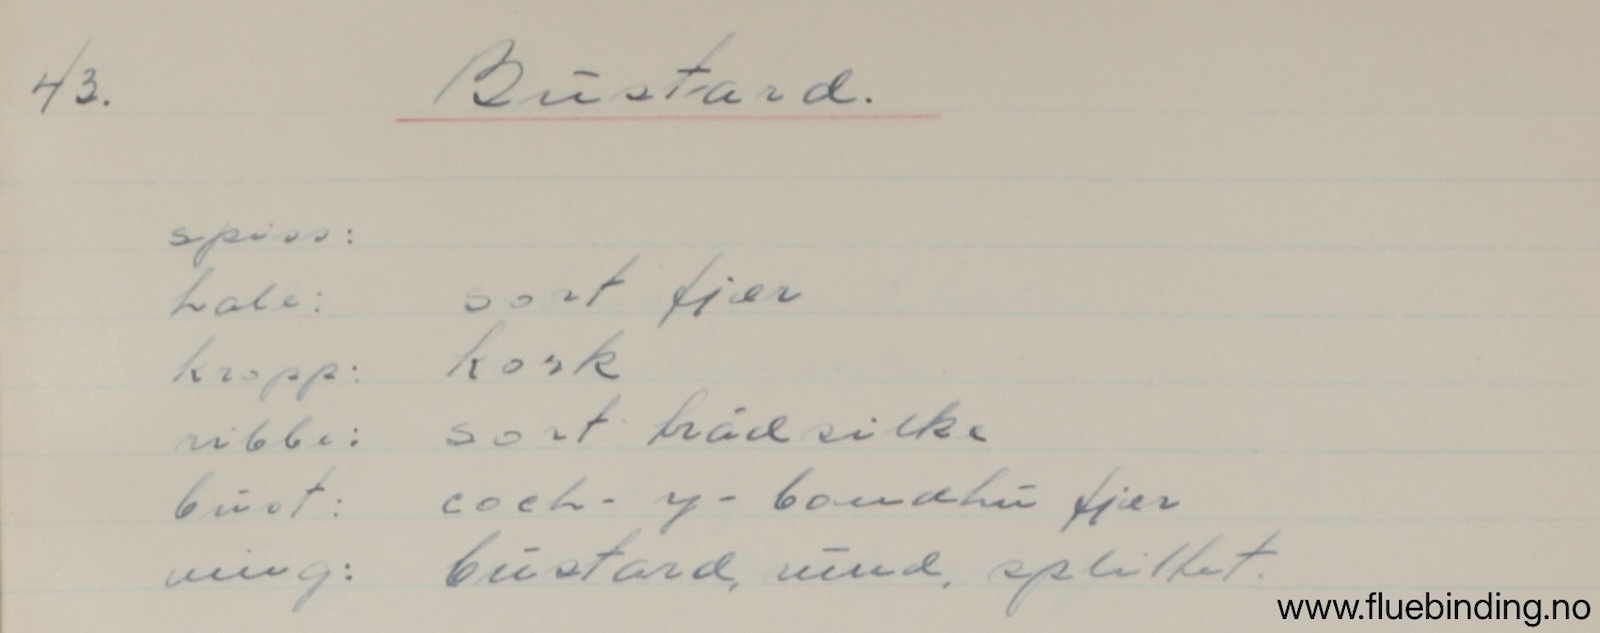 43. Bustard.
spiss:
hale: sort fjær
kropp: kork
ribbe: sort trådsilke
bust: coch-y-bondhu fjær
ving: bustard, rund, splittet.
www.fluebinding.no